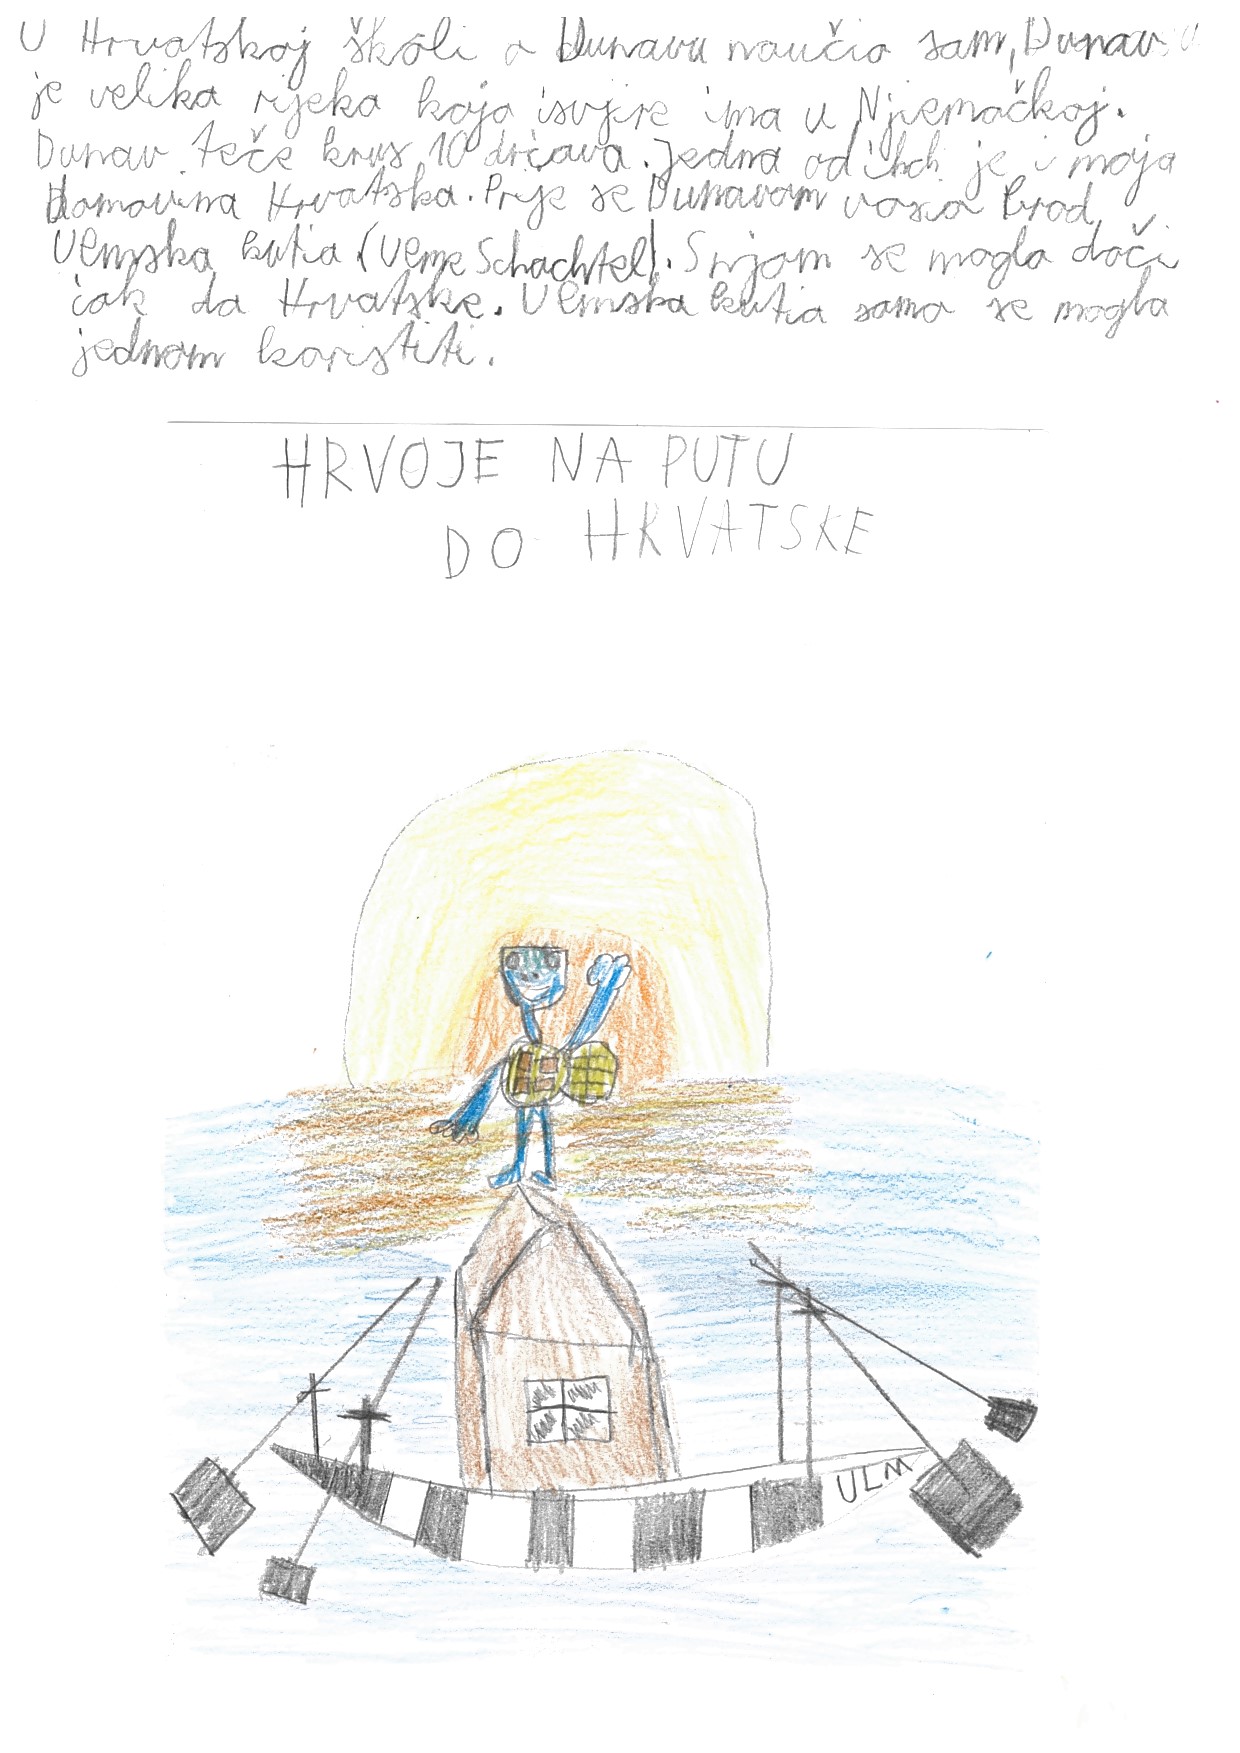 U Hrvatskoj školi o Dunavu naučio sam, Dunav
je velika rijeka koja isvjre ima u Njiemačkoj.
Dunav teče krus 10 drćava. Jedna od ihdi je i moja
Domovina Hrvatska. Prije se Dunavom vosio brod,
Ulmska kutia (Ulme Schachtel). S njom se moglo doči
čak do Hrvatske. Ulmska kutia samo se mogla
jednom koristiti.
HRVOJE NA PUTU
DO HRVATSKE
ULM